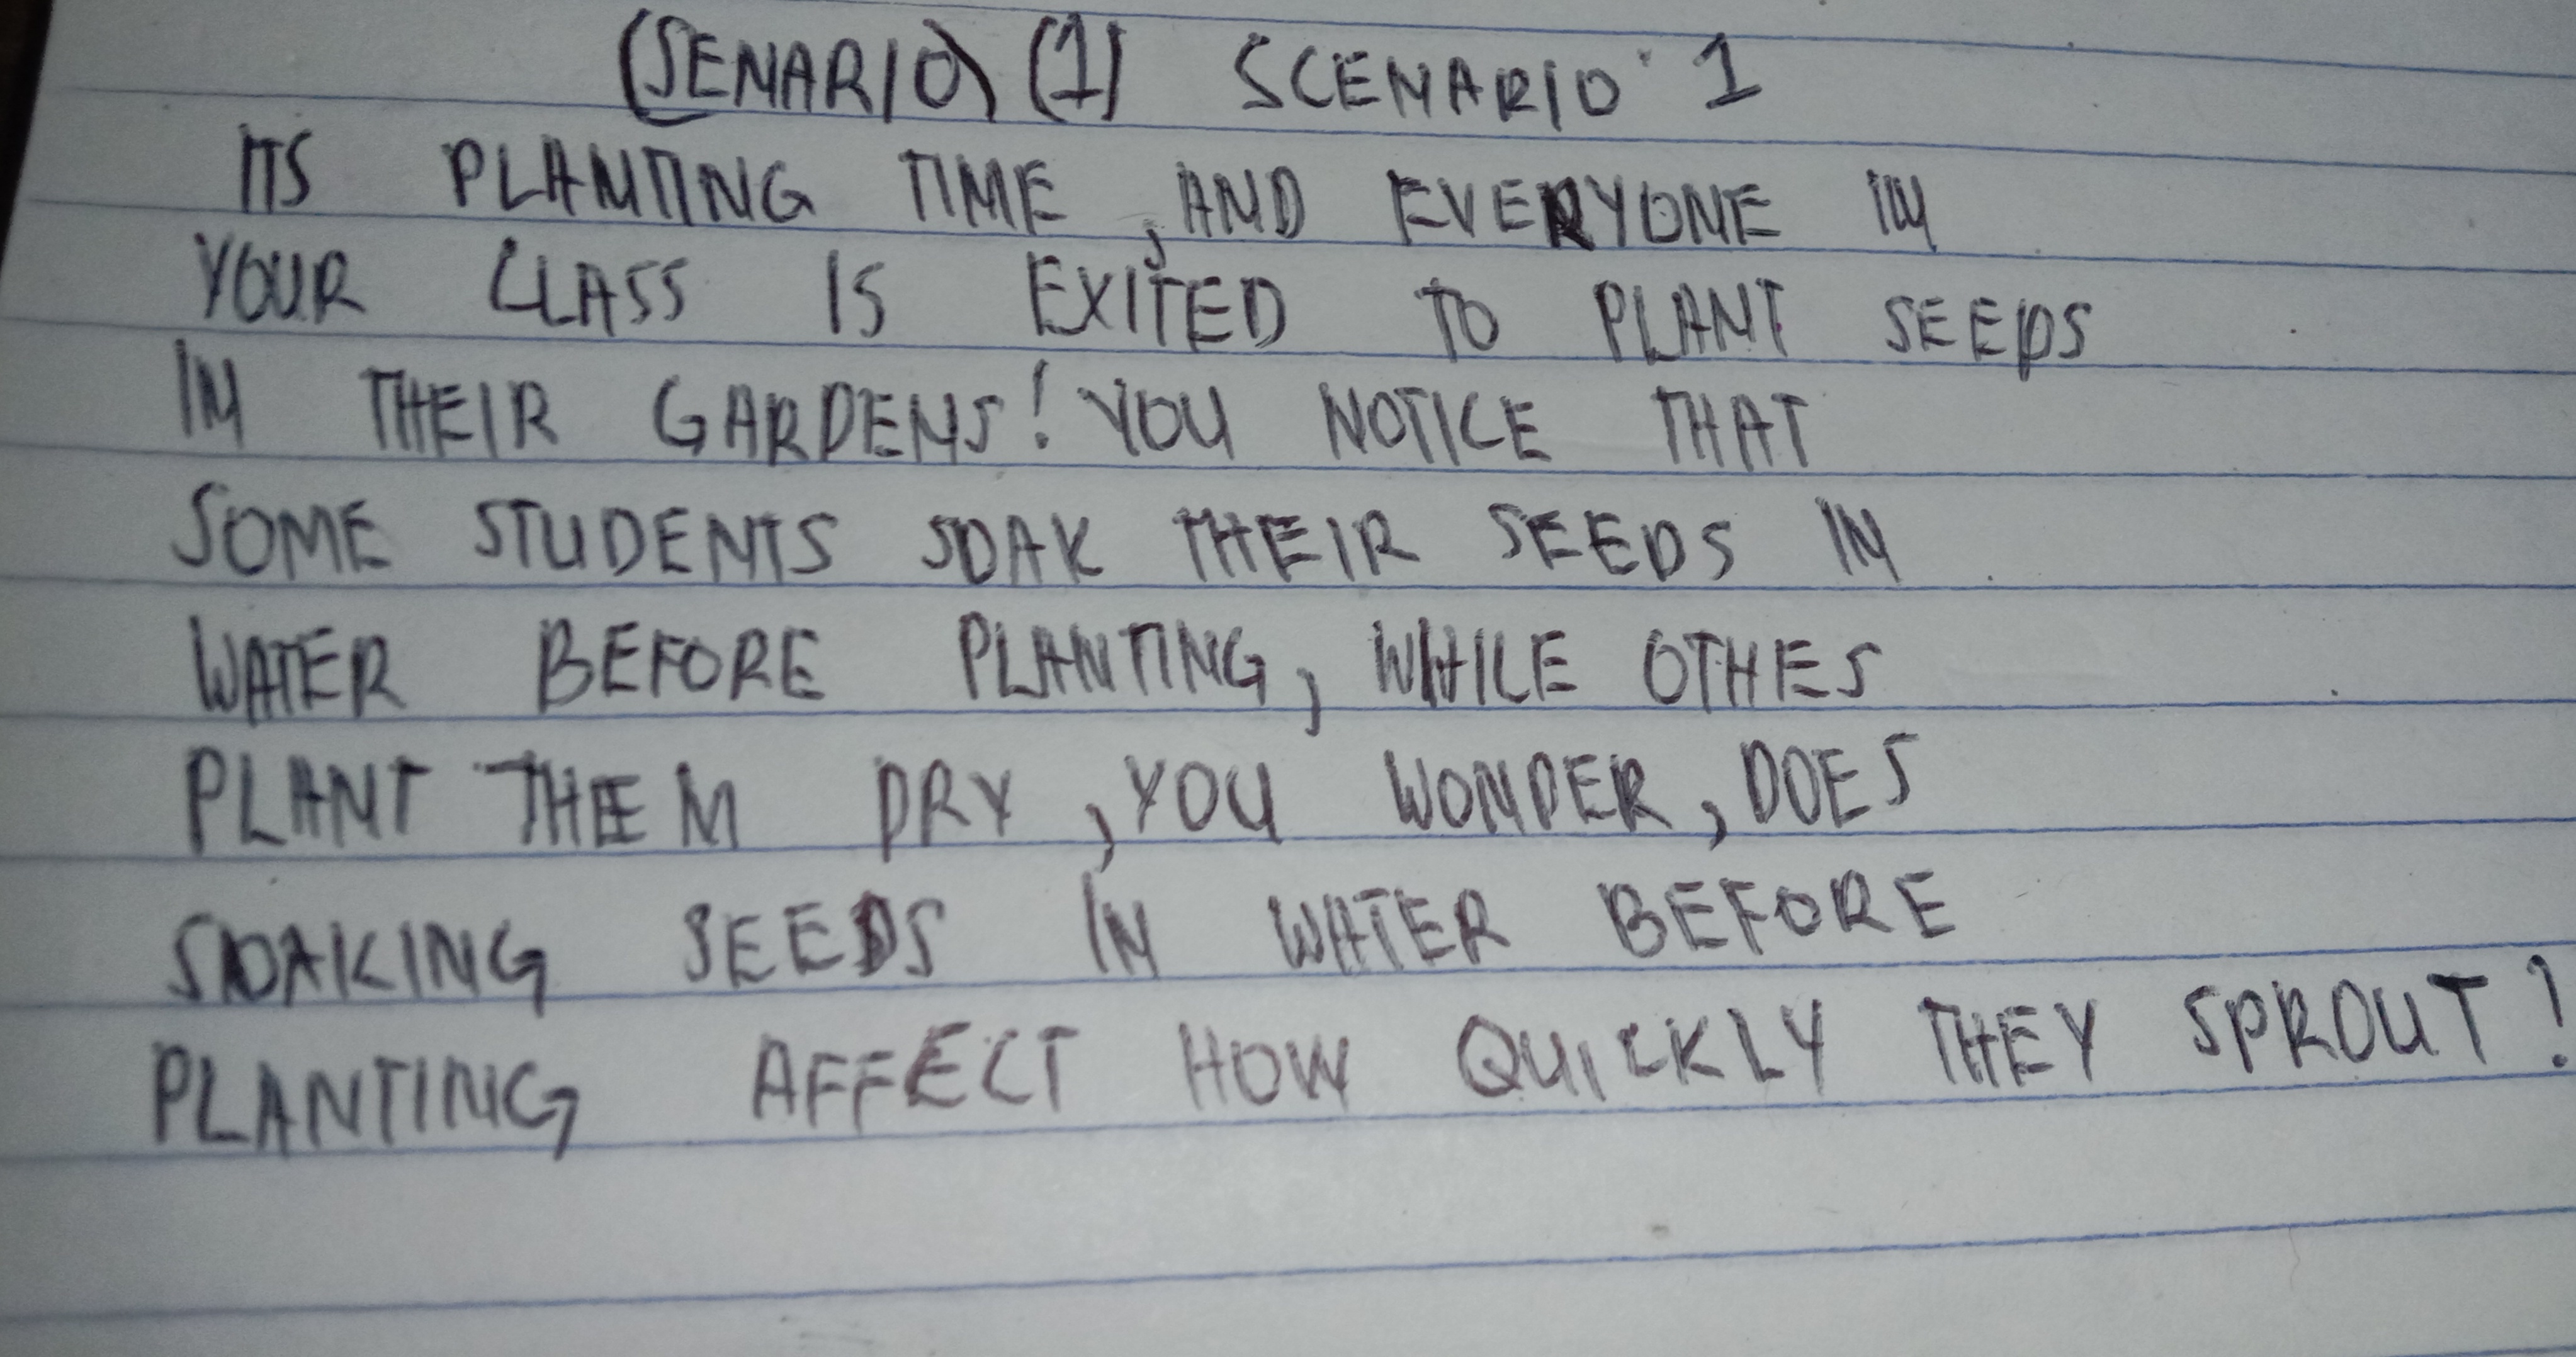 (SENARIO) (1) SCENARIO 1
ITS PLANTING TIME, AND EVERYONE IN
YOUR CLASS IS EXITED TO PLANT SEEDS
IN THEIR GARDENS! YOU NOTICE THAT
SOME STUDENTS SOAK THEIR SEEDS IN
WATER BEFORE PLANTING, WHILE OTHES
PLANT THEM DRY, YOU WONDER, DOES
SOAKING SEEDS IN WATER BEFORE
PLANTING AFFECT HOW QUICKLY THEY SPROUT!